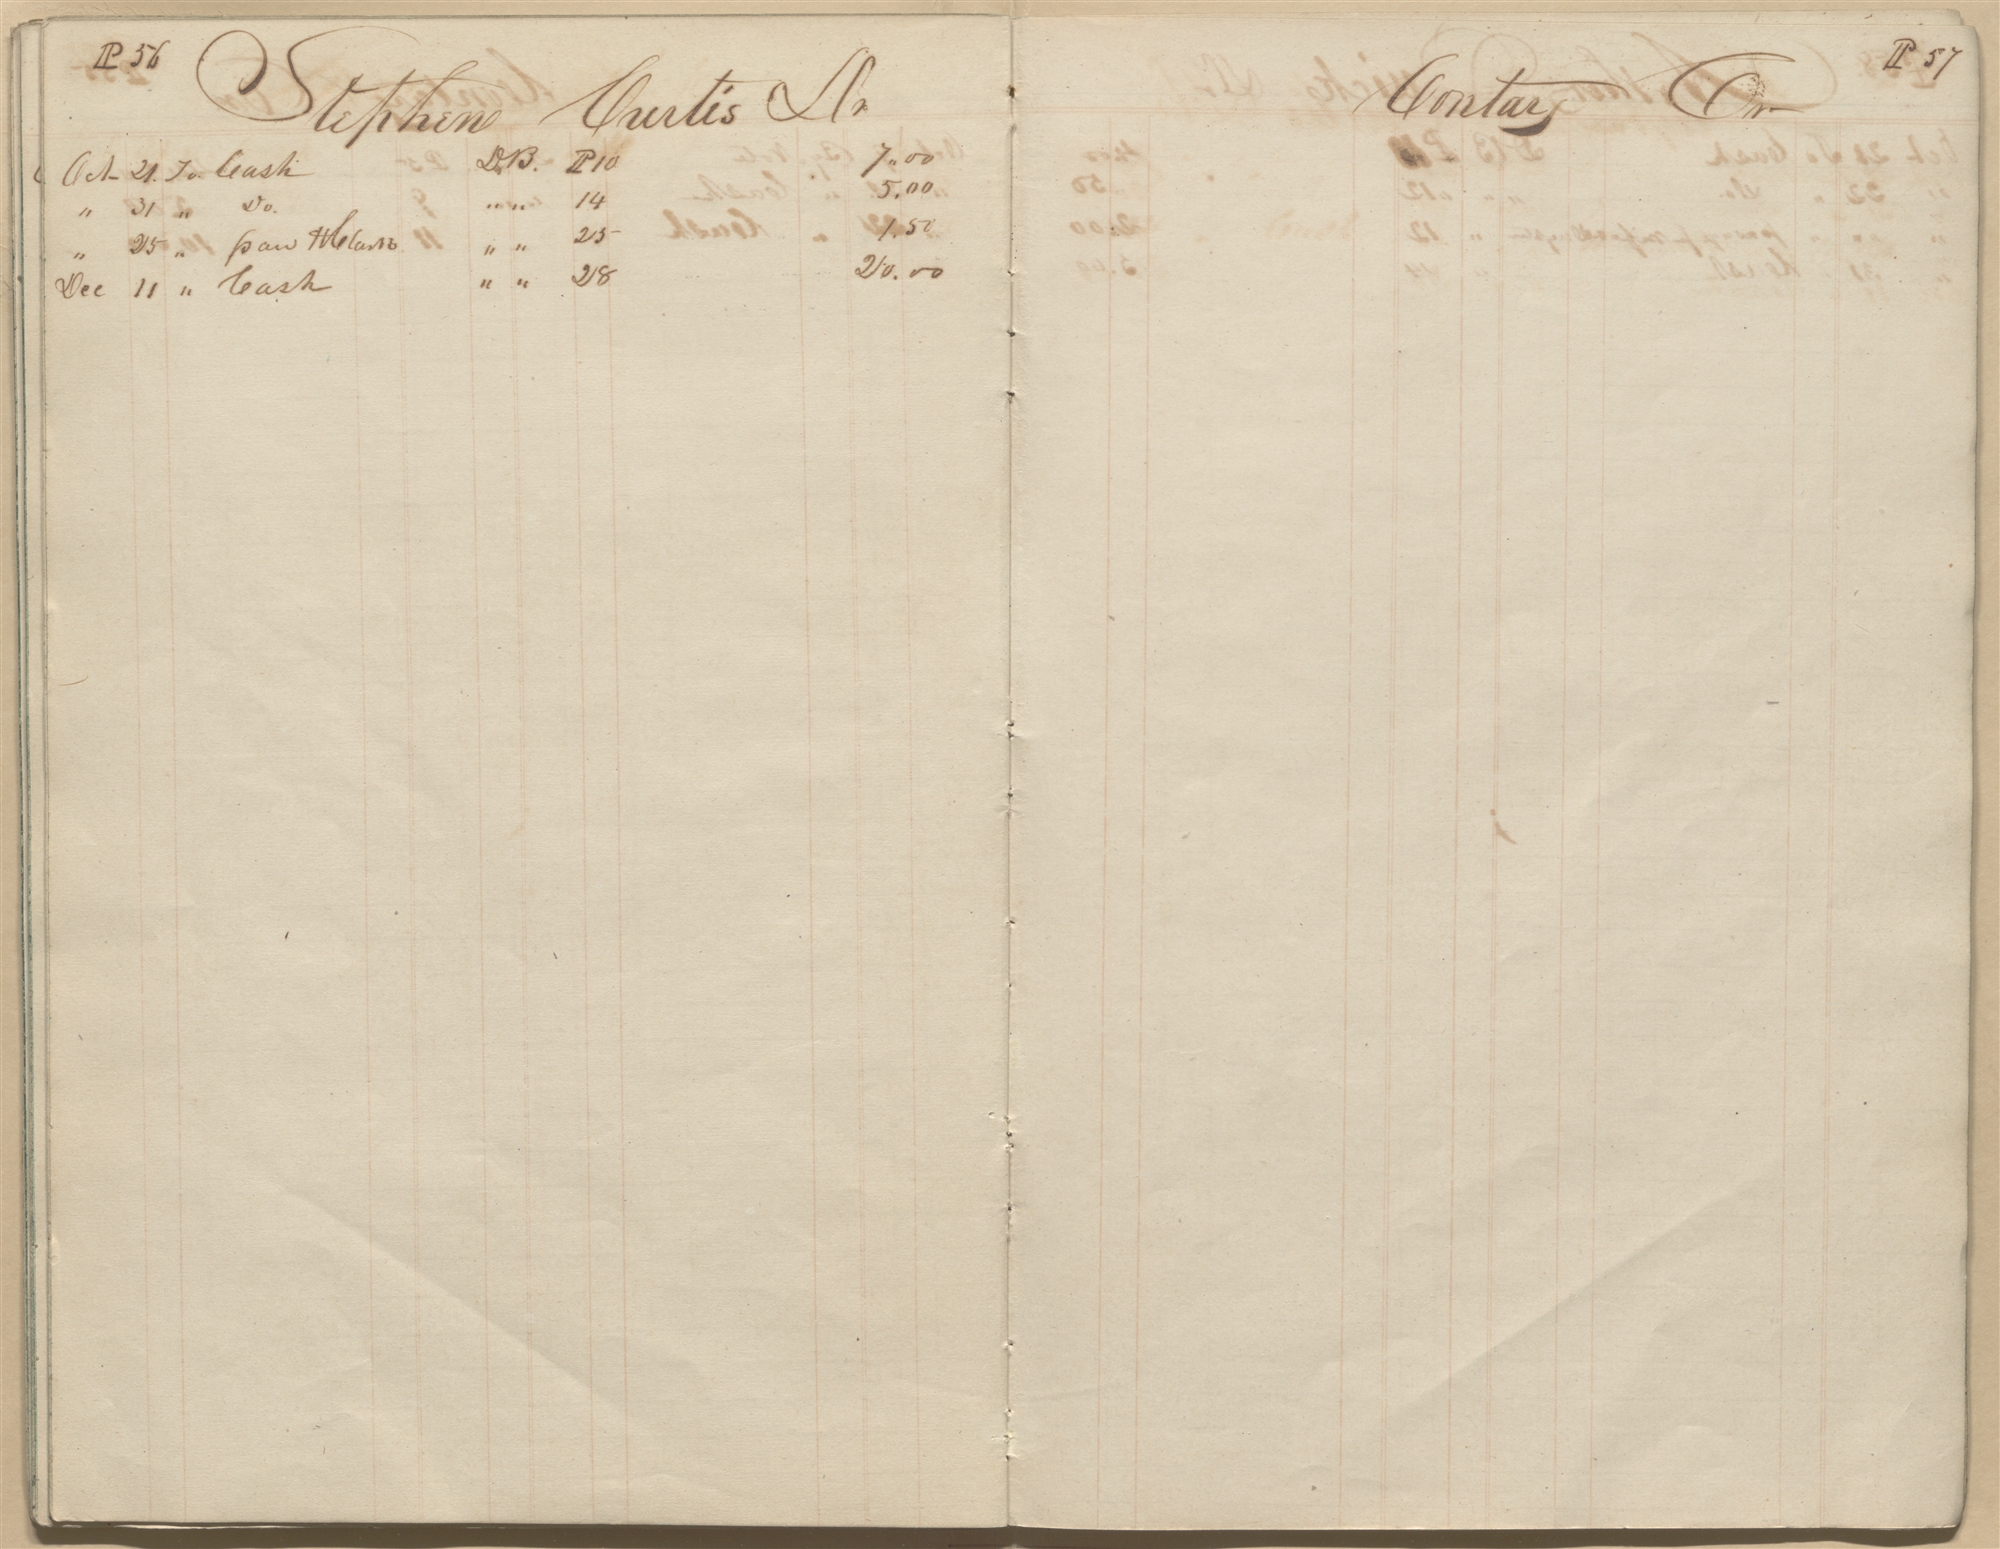 P 56
Stephen Curtis Dr
Oct 21. To. Cash D.B. P 10 7.00
" 31 " Do. " " 14 5.00
" 25 " " " 25 1.50
Dec 11 " Cash " " 28 20.00
P 57
Contary Cr